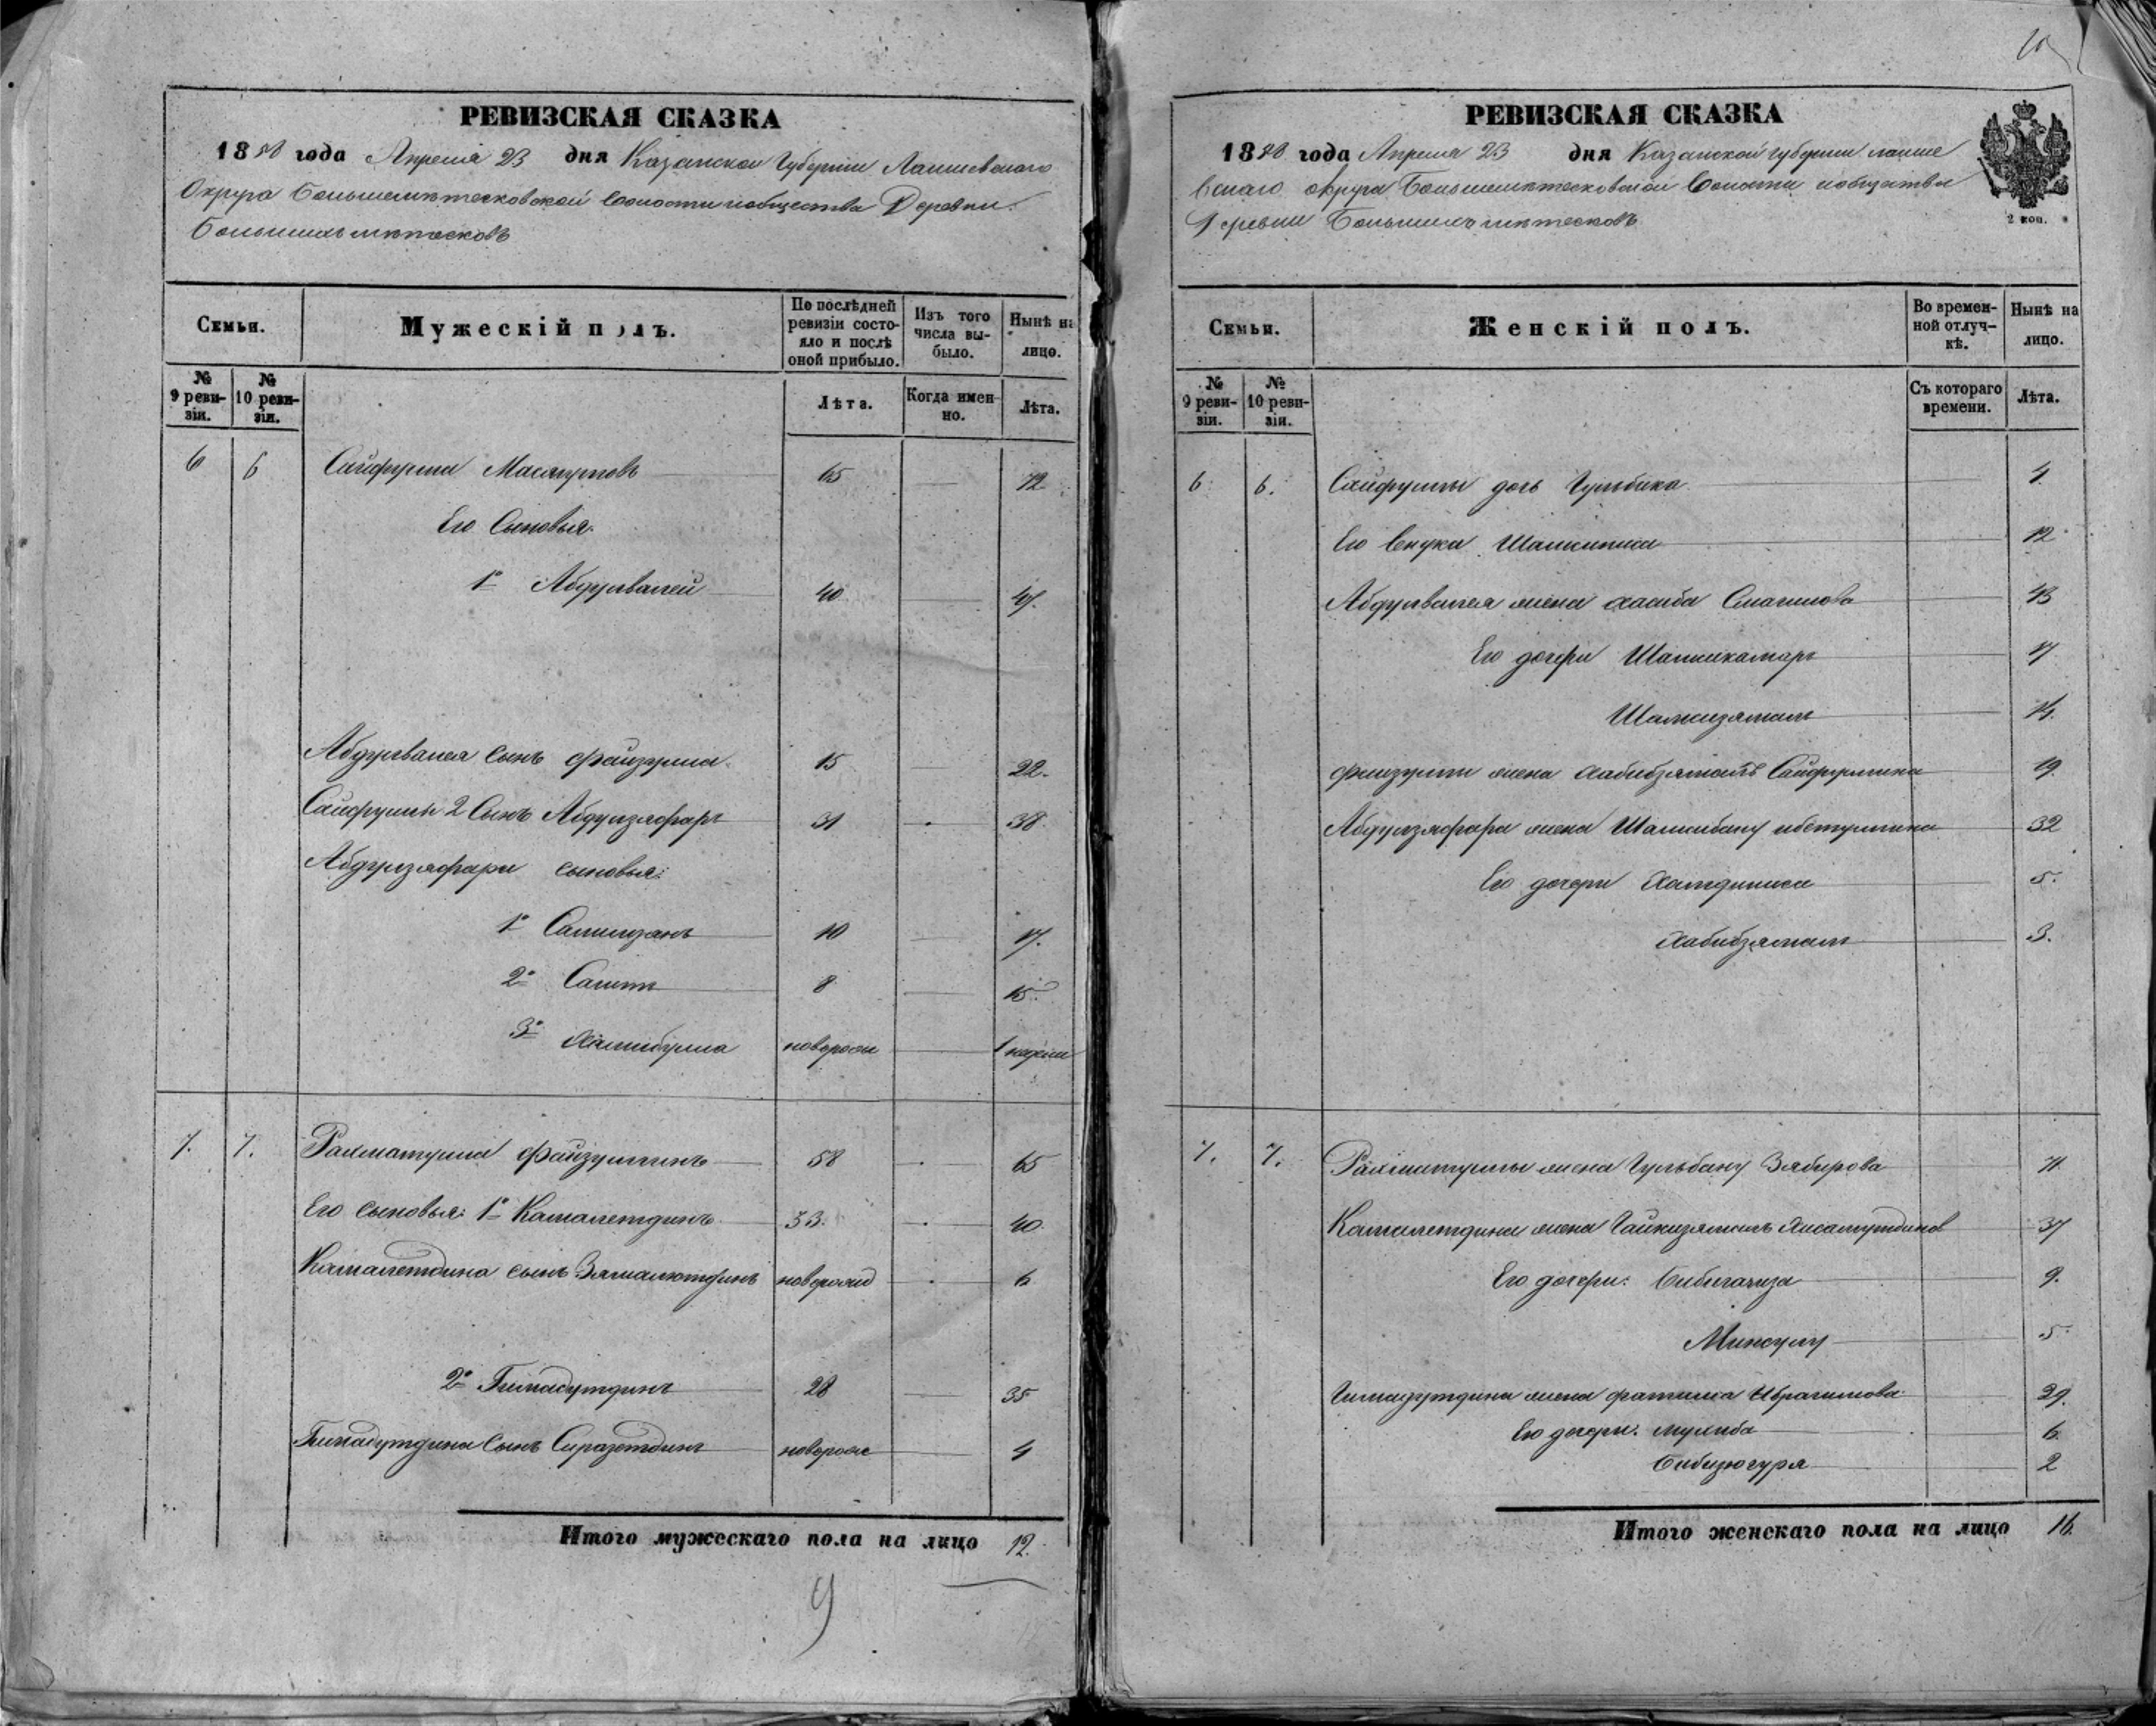 РЕВИЗСКАЯ СКАЗКА
1858 года Апреля 23 дня Казанской Губернии Лаишевскаго
Округа Большеметесковской Волости и общества Деревни
Большихъ метесковъ
Семьи.
Мужескій полъ.
По послѣдней ревизіи состояло и послѣ оной прибыло.
Изъ того числа выбыло.
Нынѣ на лицо.
№ 9 ревизіи.
№ 10 ревизіи.
Лѣта.
Когда именно.
Лѣта.
6 6 Сайфулла Масягутовъ 65 72
Его Сыновья:
1й Абдулвалей 40 47.
Абдулвалея сынъ Файзулла 15 22.
Сайфуллы 2 Сынъ Абдулзяфаръ 31 38.
Абдулзяфара сыновья:
1й Салимзянъ 10 17.
2й Салимъ 8 15.
3й Хабибулла новорож 1 недели
7. 7. Рахматулла Файзуллинъ 58 65
Его сыновья: 1й Камалетдинъ 33. 40.
Камалетдина сынъ Зямалютдинъ новорожд 6
2й Гимадутдинъ 28 35
Гимадутдина Сынъ Сиразетдинъ новорож 4
Итого мужескаго пола на лицо 12.
9
РЕВИЗСКАЯ СКАЗКА
1858 года Апреля 23 дня Казанской губернии лаише
вскаго округа Большеметесковской Волости и общества
Деревни Большихъ метесковъ
2 коп.
Семьи.
Женскій полъ.
Во временной отлучкѣ.
Нынѣ на лицо.
№ 9 ревизіи.
№ 10 ревизіи.
Съ котораго времени.
Лѣта.
6. 6. Сайфуллы дочь Гульбика 4
Его внука 12
Абдулвалея жена хасиба Смагилова 43
Его дочери Шамсикамаръ 17
Шамсизямалъ 14.
Файзуллы жена Хабибзямалъ Сайфуллина 19.
Абдулзяфара жена Шамсибану 32
Его дочери Хамдиниса 5.
Хабибзямалъ 3.
7. 7. Рахматуллы жена Гульбану Зябирова 71.
Камалетдина жена Хисамутдинов 37
Его дочери: 9.
Минсулу 5
Гимадутдина жена фатима Ибрагимова 29.
Его дочери: 6
2
Итого женскаго пола на лицо 16.